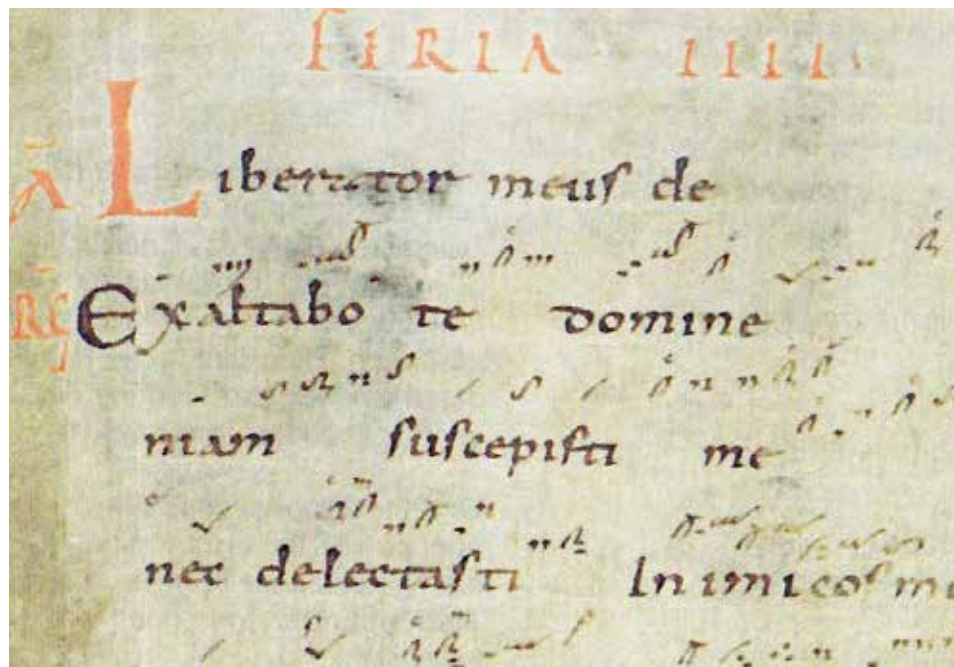 FERIA IIII.
A Liberator meus de
RG Exaltabo te domine
niam suscepisti me
nec delectasti Inimicos me